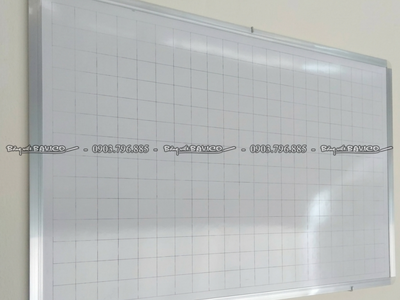 Bảng viết BAVICO - 0903.796.885 - Bảng viết BAVICO - 0903.796.885 - Bảng viết BAVICO